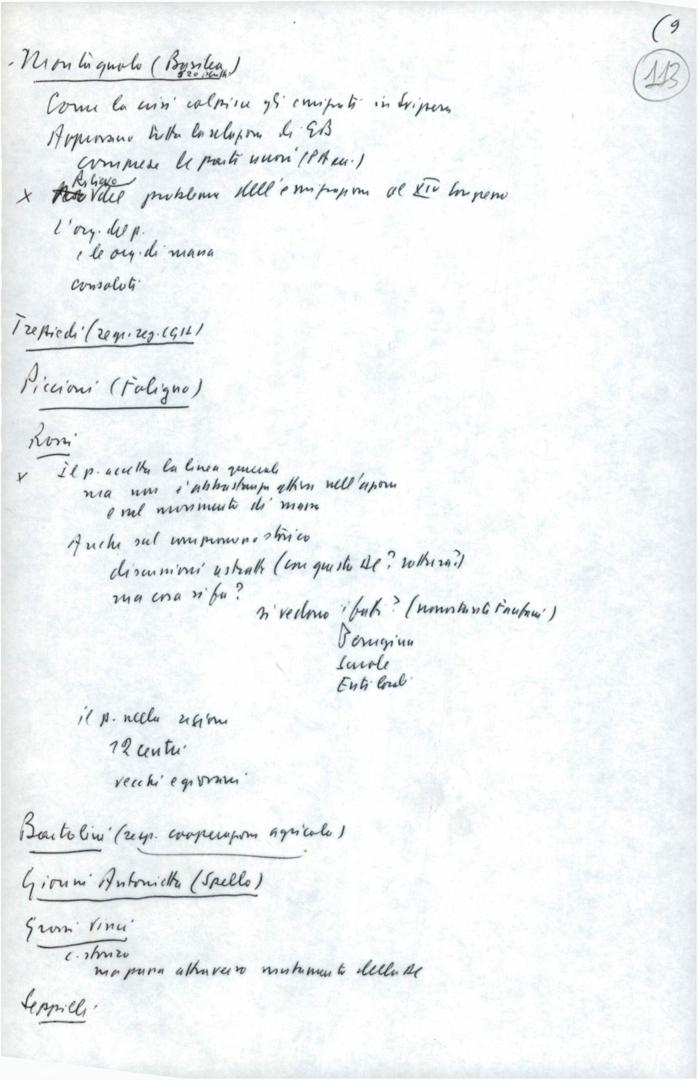 (9
113
- Montequalo (Basilea)
Come la crisi colpisce gli emigrati in Svizzera
Approvano tutta la relazione di EB
comprese le parti nuove (PA eu.)
x Rilievo del problema dell'emigrazione al XIV Congresso
L'org. del p.
e le org. di massa
consolati
Trepiedi (segr. reg. CGIL)
Piccioni (Foligno)
Rossi
x Il p. accetta la linea generale
ma non è abbastanza attivo nell'azione
e nel movimento di massa
Anche sul compromesso storico
discussioni astratte (con questa DC? rottura?)
ma cosa si fa?
si vedono i fatti? (nonostante Fanfani)
Perugina
Scuole
Enti locali
il p. nella regione
12 centri
vecchi e giovani
Bartolini (resp. cooperazione agricola)
Gionni Antonietta (Spello)
Grossi Vinci
c. storico
ma passa attraverso mutamento della DC
Seppilli